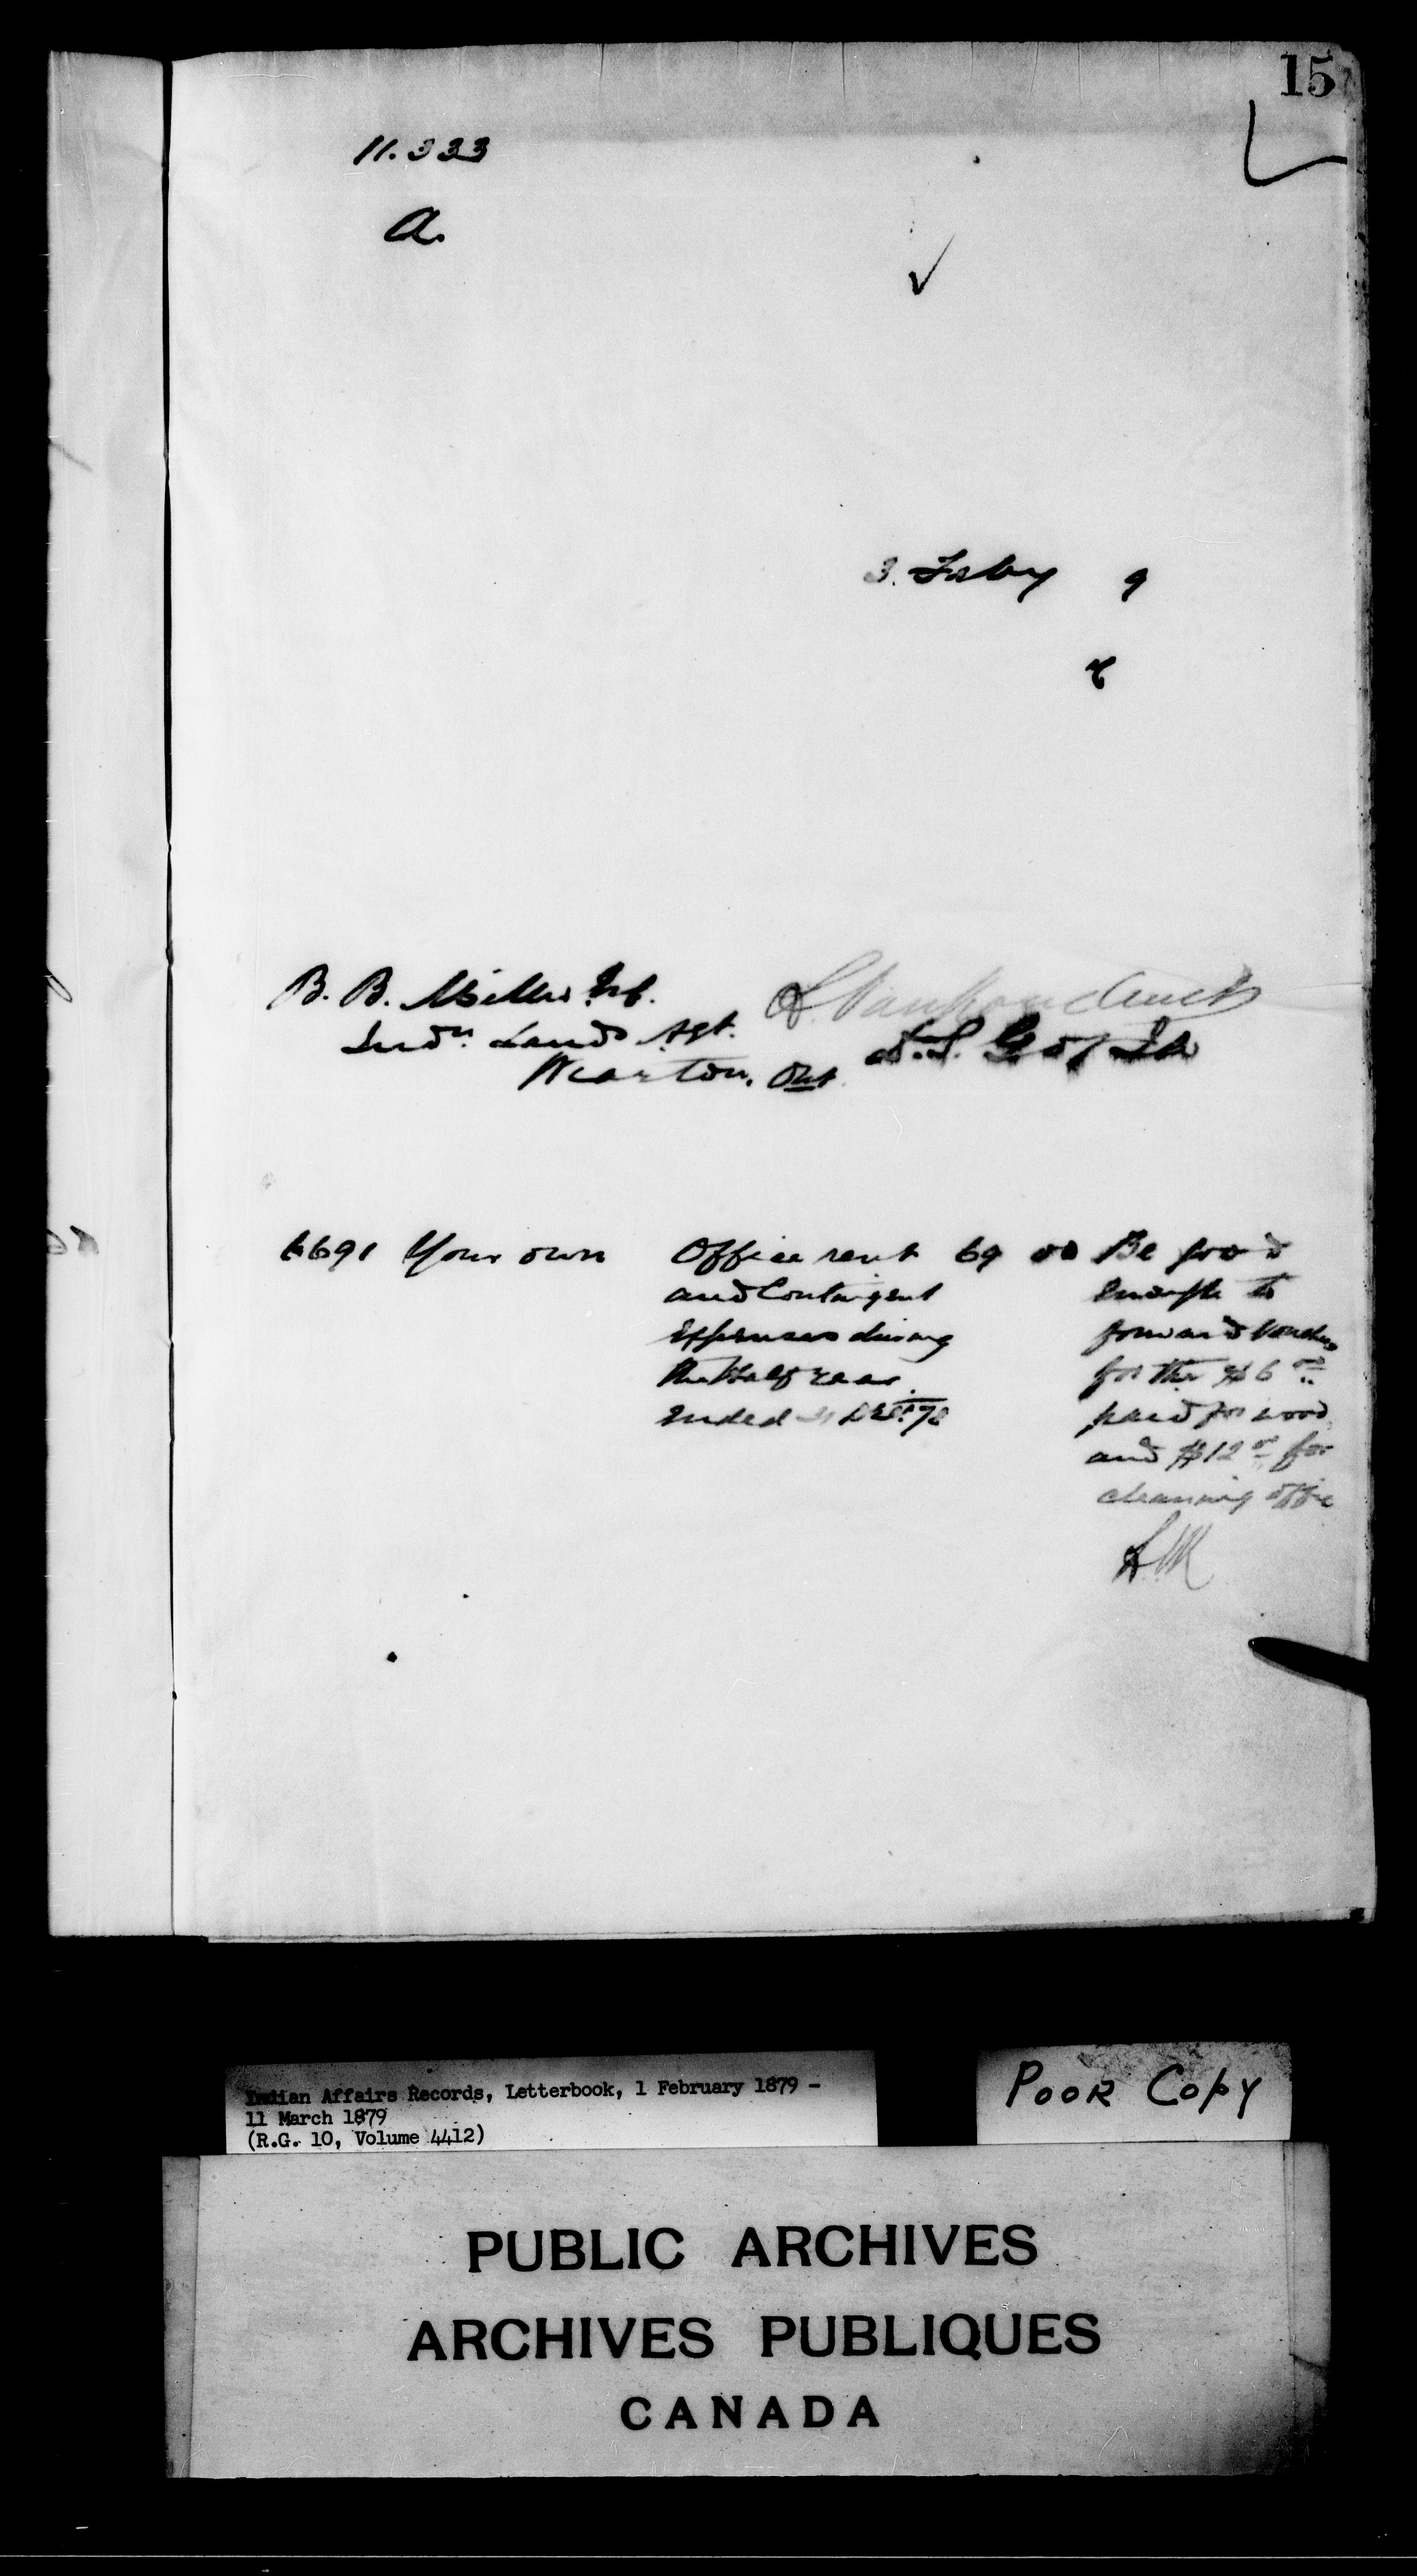 15
11.333
A.
3. Feby 9
B. B. Miller Esq.
Indn. Lands Agt.
Wiarton, Ont.
L. Vankoughnet
D.S. G of I A
6691 Your own Office rent 69 00 Be good
and Contingent enough to
Expenses during forward Voucher
the Half Year for the $6 00
Ended 31 Dec. 78 paid for wood
and $12 00 for
cleaning office
L.V.
Indian Affairs Records, Letterbook, 1 February 1879 -
11 March 1879
(R.G. 10, Volume 4412)
POOR COPY
PUBLIC ARCHIVES
ARCHIVES PUBLIQUES
CANADA